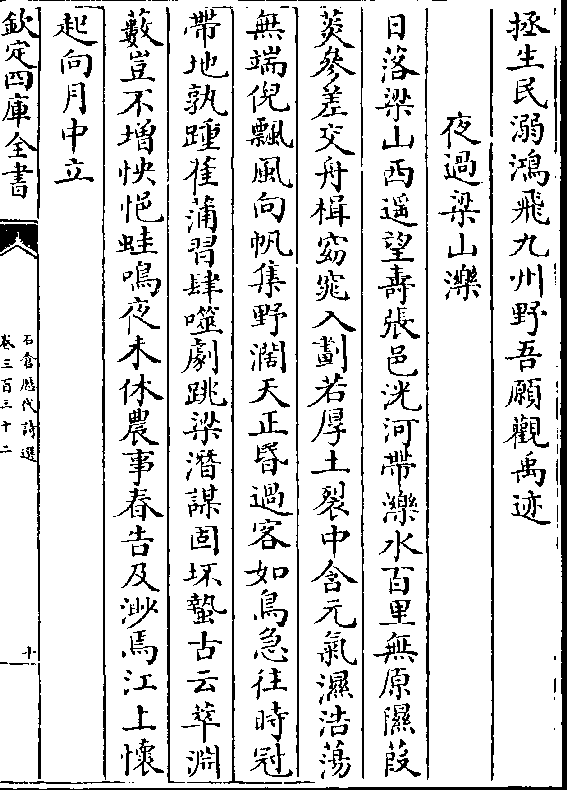 拯生民溺鴻飛九州野吾願觀禹迹
夜過梁山濼
日落梁山西遥望壽張邑洸河帶濼水百里無原隰葭
菼參差交舟楫窈窕入劃若厚土裂中含元氣濕浩蕩
無端倪飄風向帆集野濶天正昏過客如鳥急往時冠
帶地孰踵萑蒲習肆噬劇跳梁潛謀固坏蟄古云萃淵
藪豈不增怏悒蛙鳴夜未休農事春告及渺焉江上懷
起向月中立
欽定四庫全書
石倉歴代詩選
卷三百三十二
十